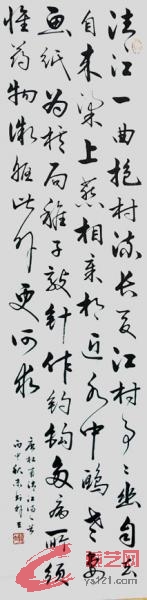 清江一曲抱村流长夏江村事〻幽自去
自来梁上燕相亲相近水中鸥老妻
画纸为棋局稚子敲针作钓钩多病所须
惟药物微躯此外更何求
唐杜甫
丙申秋